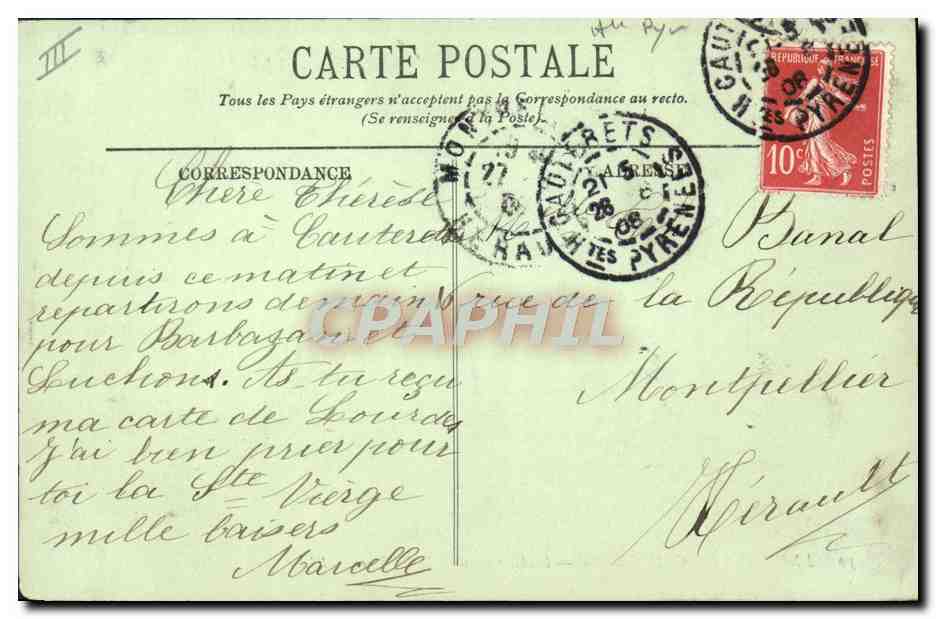 III
CARTE POSTALE
Tous les Pays étrangers n'acceptent pas la Correspondance au recto.
(Se renseigner à la Poste).
CORRESPONDANCE
ADRESSE
REPUBLIQUE FRANÇAISE
10c
POSTES
CAUTERETS
HTES PYRENEES
CAUTERETS
HTES PYRENEES
28
08
MON
27
HERAU
Chère Thérèse
Sommes à Cauterets
depuis ce matin et
repartirons demain
pour Barbazan et
Luchon. As-tu reçu
ma carte de Lourdes
J'ai bien prier pour
toi la Ste Vierge
mille baisers
Marcelle
Banal
rue de la République
Montpellier
Hérault
CPAPHIL